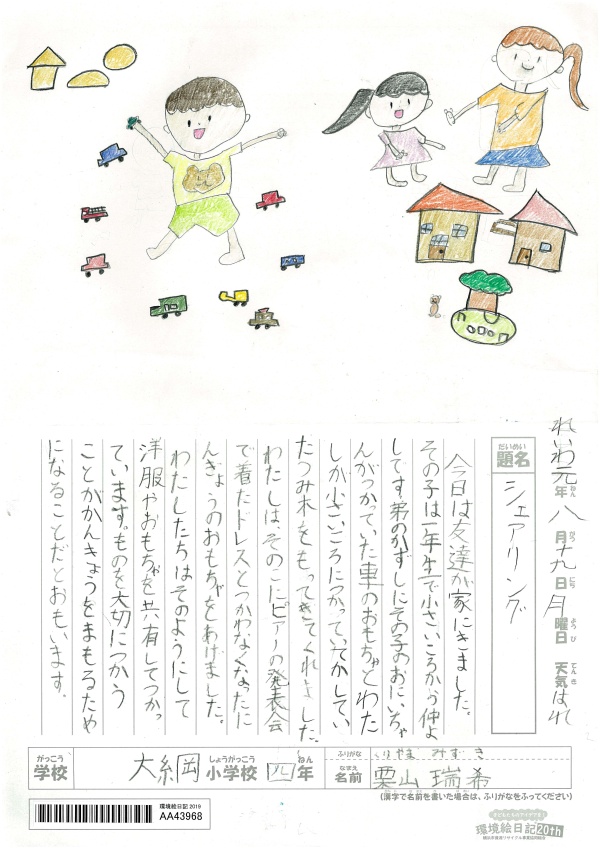 れいわ元年八月十九日月曜日 天気はれ
ねん
がつ
にち
ようび
てんき
だいめい
題名
シェアリング
今日は友達が家にきました。
その子は一年生で小さいころから仲よ
してす。弟のかずしにその子のおにいちゃ
んがつかっていた車のおもちゃとわた
しが小さいころにつかっていてかしてい
たつみ木をもってきてくれました。
わたしは、そのこにピアノの発表会
で着たドレスとつかわなくなったに
んぎょうのおもちゃをあげました。
わたしたちはそのようにして
洋服やおもちゃを共有してつかっ
ています。ものを大切につかう
ことがかんきょうをまもるため
になることだとおもいます。
がっこう しょうがっこう ねん
学校 大綱小学校 四年
ふりがな くりやま みずき
なまえ
名前 栗山 瑞希
(漢字で名前を書いた場合は、ふりがなをふってください)
環境絵日記 2019
AA43968
環境絵日記20th